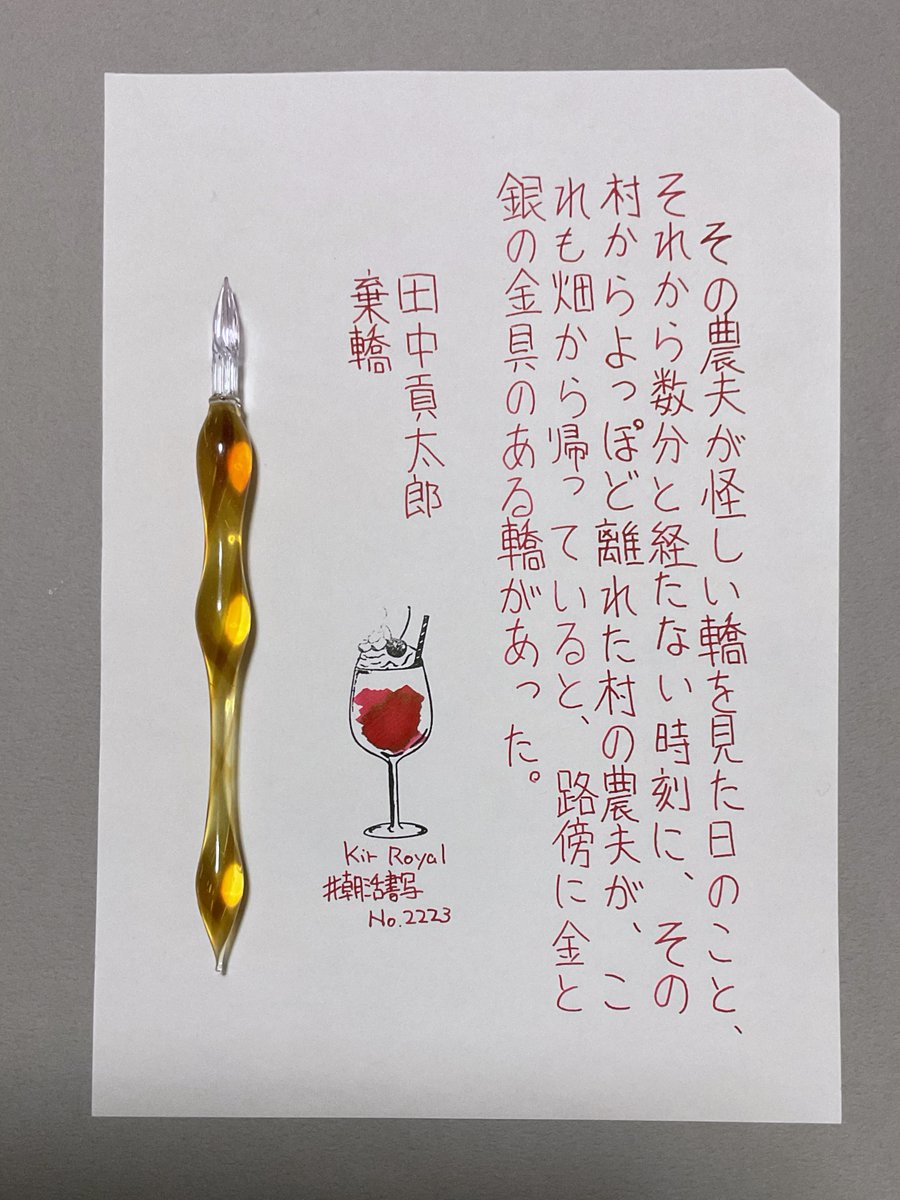 その農夫が怪しい轎を見た日のこと、
それから数分と経たない時刻に、その
村からよっぽど離れた村の農夫が、こ
れも畑から帰っていると、路傍に金と
銀の金具のある轎があった。
田中貢太郎
棄轎
Kir Royal
#朝活書写
No.2223